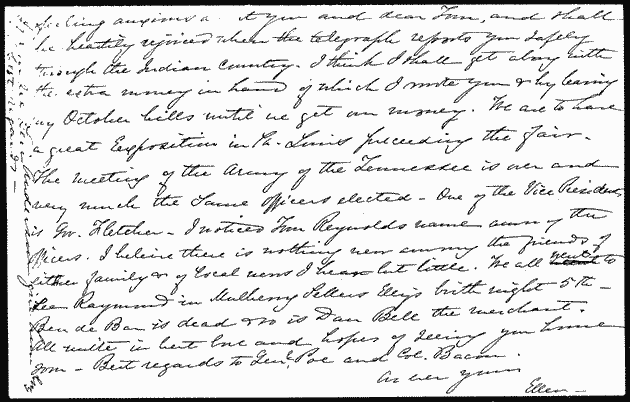 feeling anxious a t you and dear Tom, and shall
be heartily rejoiced when the telegraph reports you safely
through the Indian Country. I think I shall get along with
the extra money in hand of which I wrote you & by leaving
my October bills until we get our money. We are to have
a great Exposition in St. Louis preceeding the Fair.
The meeting of the Army of the Tennessee is over and
very much the same officers elected - One of the Vice Presidents
is Gov. Fletcher - I noticed Tom Reynolds name among the
officers. I believe there is nothing new among the friends of
either family & of local news I hear but little. We all went to
see Raymond in Mulberry Sellers Elly's birth night 5th -
Ben de Bar is dead & so is Dan Bell the merchant.
All unite in best love and hopes of seeing you home
soon - Best regards to Genl. Poe and Col. Bacon.
As ever yours
Ellen -